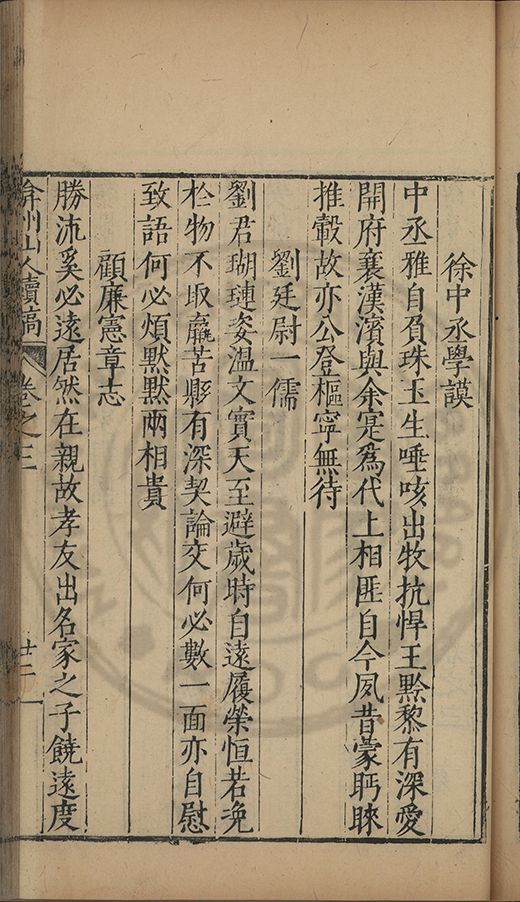 徐中丞學謨
中丞雅自負珠玉生唾咳出牧抗悍王黔黎有深愛
開府襄漢濱與余寔為代上相匪自今夙昔蒙眄睞
推轂故亦公登樞寧無待
劉廷尉一儒
劉君瑚璉姿溫文實天至避歲時自遠履榮恒若浼
於物不取羸苦縣有深契論交何必數一面亦自慰
致語何必煩默默兩相貴
顧廉憲章志
勝流奚必遠居然在親故孝友出名家之子饒遠度
弇州山人續稿 卷之三 廿二